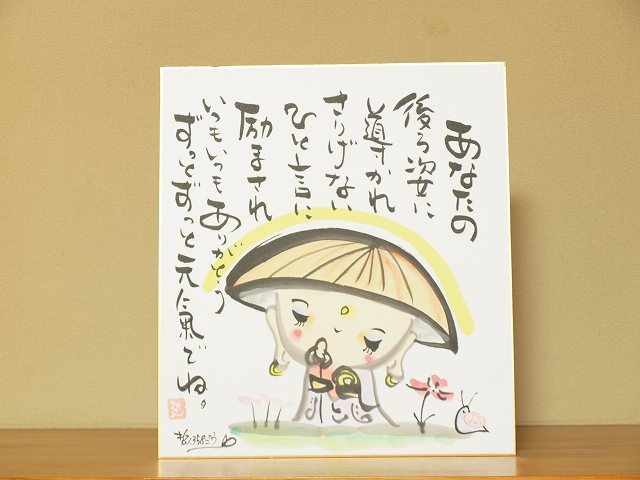 あなたの
後ろ姿に
導かれ
さりげない
ひと言に
励まされ
いつもいつもありがとう
ずっとずっと元氣でね。